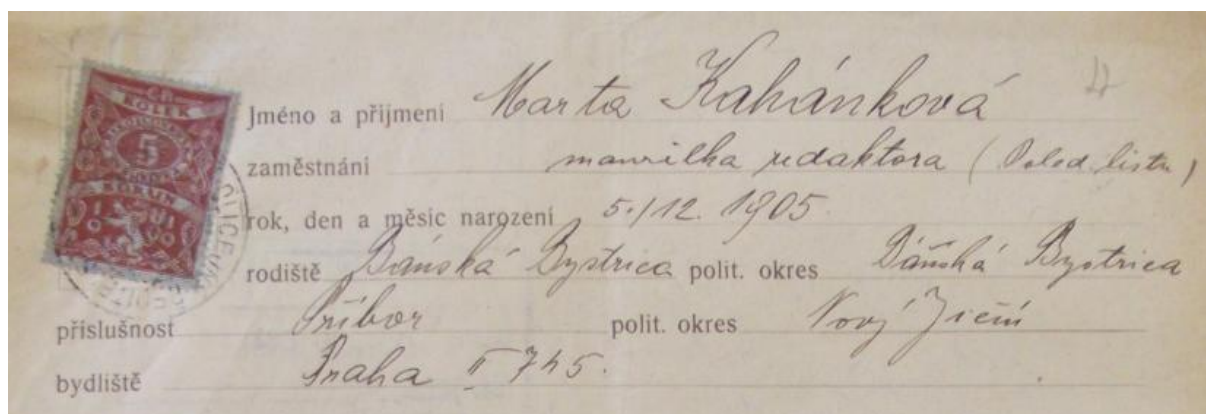 KOLEK
5
KORUN
Jméno a přijmení Marta Kahánková
zaměstnání manželka redaktora (Poled. listu)
rok, den a měsíc narození 5./12. 1905.
rodiště Báňská Bystrica polit. okres Báňská Bystrica
příslušnost Příbor polit. okres Nový Jičín
bydliště Praha II 745.